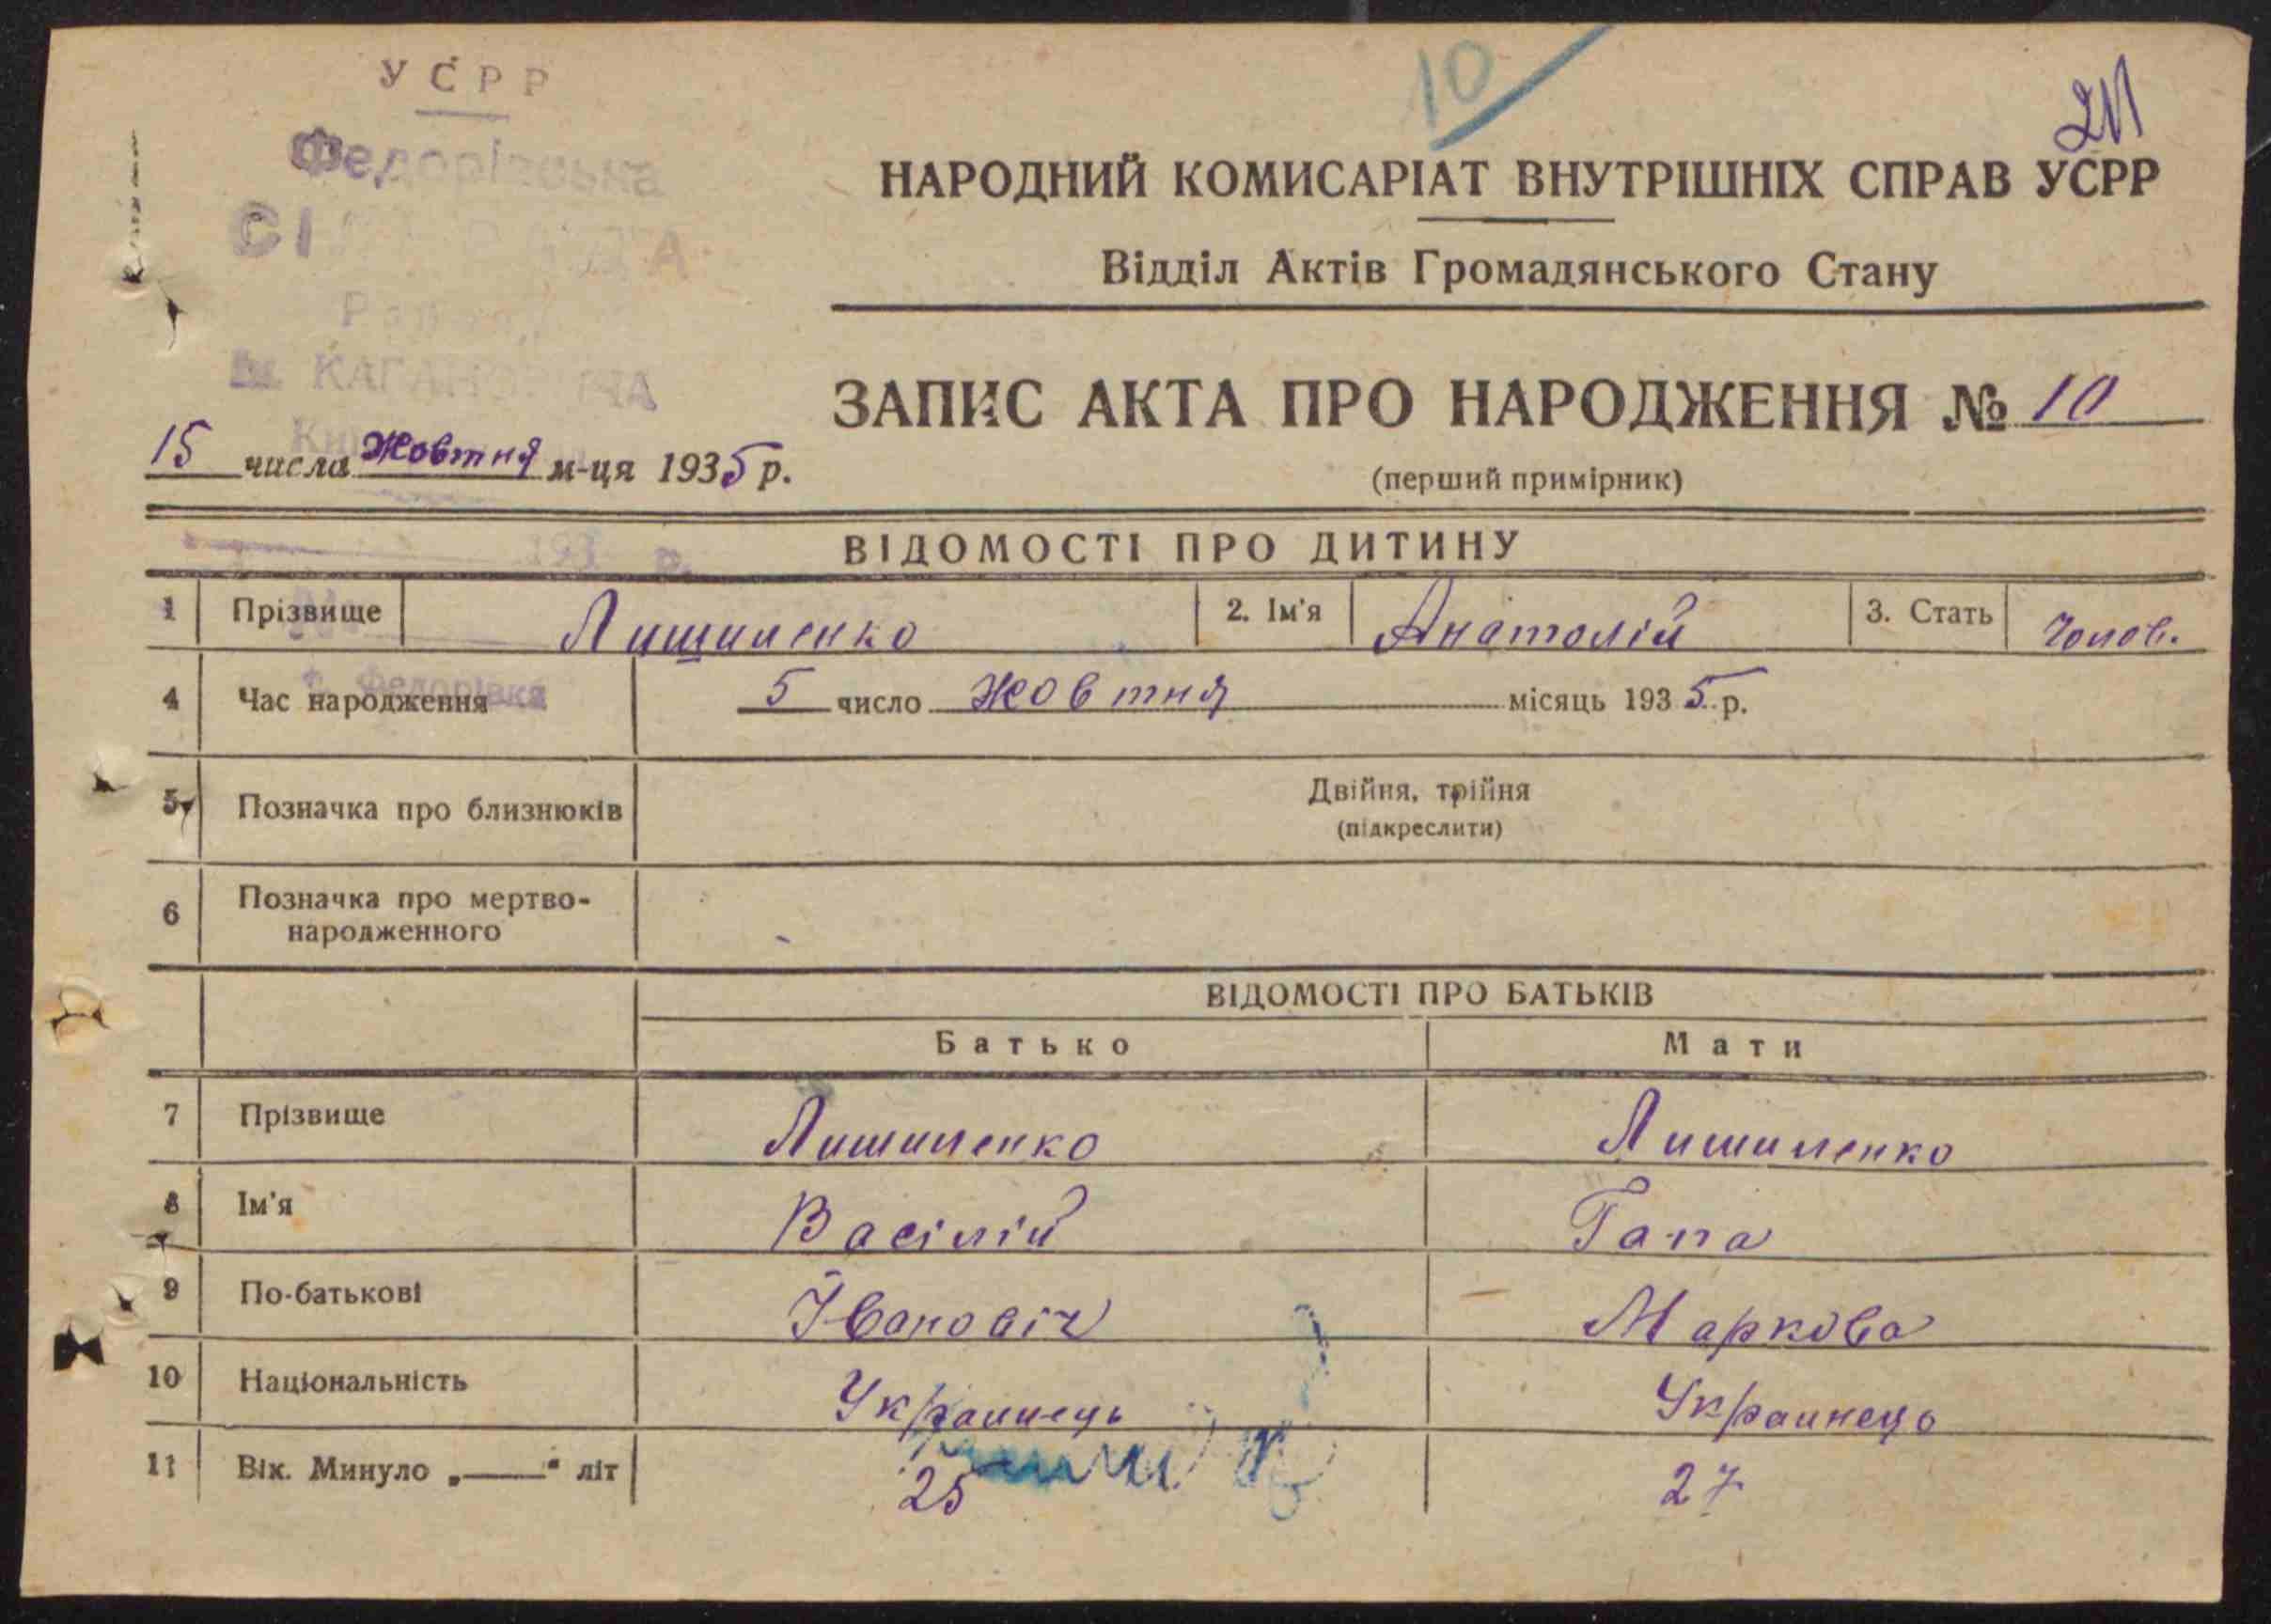 УСРР
10
211
Федорівська
СІЛЬРАДА
НАРОДНИЙ КОМИСАРІАТ ВНУТРІШНІХ СПРАВ УСРР
Відділ Актів Громадянського Стану
Району
ім. КАГАНОВИЧА
ЗАПИС АКТА ПРО НАРОДЖЕННЯ № 10
(перший примірник)
15 числа Жовтня м-ця 1935 р.
193 р.
ВІДОМОСТІ ПРО ДИТИНУ
1 Прізвище Лишиленко 2. Ім'я Анатолій 3. Стать Чолов.
с. Федорівка
4 Час народження 5 число Жовтня місяць 1935 р.
5 Позначка про близнюків Двійня, трійня
(підкреслити)
6 Позначка про мертво-
народженного
ВІДОМОСТІ ПРО БАТЬКІВ
Батько Мати
7 Прізвище Лишиленко Лишиленко
8 Ім'я Василій Гапа
9 По-батькові Івановіч Маркова
10 Національність Украинець Украинець
11 Вік. Минуло „——“ літ 25 27